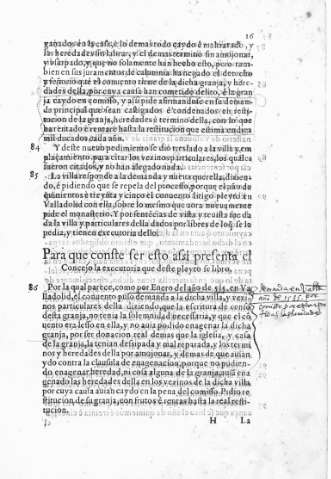 16
ganados, é la casa, è lo demas todo caydo è maltratado, y
las heredades sin labrar, y el demas termino sin amojonar,
y vsurpado, y que no solamente han hecho esto, pero tam-
bien en sus juramentos de calumnia han negado el derecho
y señorio que tiene el conuento de la dicha granja, y here
dades della, por cuya causa han cometido delito, è la gran
ja caydo en comisso, y assi pide afirmandose en su deman
da principal que sean castigados è condenados en resti-
tucion de la granja, heredades è termino della, con lo que
ha rentado è rentare hasta la restitucion que estima en dos
mil ducados cada año.
84 Y deste nueuo pedimento se dió traslado a la villa y em
plaçamiento para citar los vezinos particulares, los quales
fueron citados, y no han alegado nada.
85 La villa responde a la demanda y nueua querella dizien-
do, è pidiendo que se repela del processo, porque el año de
quinientos è treinta y cinco el conuento litigò pleyto en
Valladolid con ella sobre lo mesmo que aora nueuamente
pide el monasterio. Y por sentécias de vista y reuista fue da
da la villa y particulares della dados por libres de lo q̃ se lo
pedia, y tienen executoria dello.
Para que conste ser esto assi presenta el
Concejo la executoria que deste pleyto se libro.
86 Por la qual parece, como por Enero del año de 535. en Va
lladolid, el conuento puso demanda a la dicha villa, y vezi
nos particulares della, diziendo, que la escritura de censo
desta granja, no tenia la solemnidad necessaria, y que el có
uento era leso en ella, y no auia podido enagenar la dicha
granja, por ser donacion real demas que la iglesia, y casa
de la granja, la tenian dessipada y mal reparada, y los termi
nos y heredades della por amojonar, y demas de que auian
ydo contra la clausula de enagenacion, porque no pudien-
do enagenar heredad, ni casa alguna de la granja, auian ena
genado las heredades della en los vezinos de la dicha villa
por cuya causa auian caydo en la pena del comisso. Pidio re
stitucion de la granja, con frutos è rentas hasta la real resti-
tucion.
H La